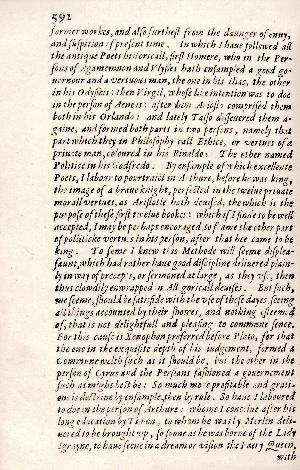 592
former workes, and also furthest from the daunger of enuy,
and suspition of present time. In which I haue followed all
the antique Poets historicall, first Homere, who in the Per-
sons of Agamemnon and Vlysses hath ensampled a good go-
uernour and a vertuous man, the one in his Ilias, the other
in his Odysseis: then Virgil, whose like intention was to doe
in the person of Aeneas: after him Ariosto comprised them
both in his Orlando: and lately Tasso disseuered them a-
gaine, and formed both parts in two persons, namely that
part which they in Philosophy call Ethice, or vertues of a
priuate man, coloured in his Rinaldo: The other named
Politice in his Godfredo. By ensample of which excellente
Poets, I labour to pourtraict in Arthure, before he was king,
the image of a braue knight, perfected in the twelue priuate
morall vertues, as Aristotle hath deuised, the which is the
purpose of these first twelue bookes: which if I finde to be well
accepted, I may be perhaps encoraged, to frame the other part
of polliticke vertues in his person, after that hee came to be
king. To some I know this Methode will seeme displea-
saunt, which had rather haue good discipline deliuered plain-
ly in way of precepts, or sermoned at large, as they vse, then
thus clowdily enwrapped in Allegoricall deuises. But such,
me seeme, should be satisfide with the vse of these dayes seeing
all things accounted by their showes, and nothing esteemed
of, that is not delightfull and pleasing to commune sence.
For this cause is Xenophon preferred before Plato, for that
the one in the exquisite depth of his iudgement, formed a
Commune welth such as it should be, but the other in the
person of Cyrus and the Persians fashioned a gouernement
such as might best be: So much more profitable and grati-
ous is doctrine by ensample, then by rule. So haue I laboured
to doe in the person of Arthure: whome I conceiue after his
long education by Timon, to whom he was by Merlin deli-
uered to be brought vp, so soone as he was borne of the Lady
Igrayne, to haue seene in a dream or vision the Faery Queen,
with